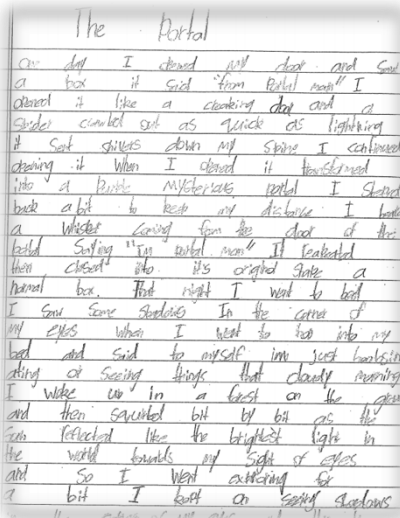 The Portal
One day I opened my door and saw
a box it said "from Portal man" I
opened it like a creaking door and a
Spider crawled out as quick as lightning
it sent shivers down my spine I continued
opening it when I opened it transformed
into a Purple mysterious portal I stepped
back a bit to keep my distance I heard
a whisper coming from the door of the
portal saying "I'm Portal man" It
then closed into it's original shape a
normal box. That night I went to bed
I saw some shadows In the corner of
my eyes when I went to hop into my
bed and said to myself im just
or seeing things that cloudy morning
I woke up in a forest on the
and then bit by bit as the
Sun reflected like the brightest light in
the world towards my sight of eyes
and so I went exploring for
a bit I kept on seeing shadows